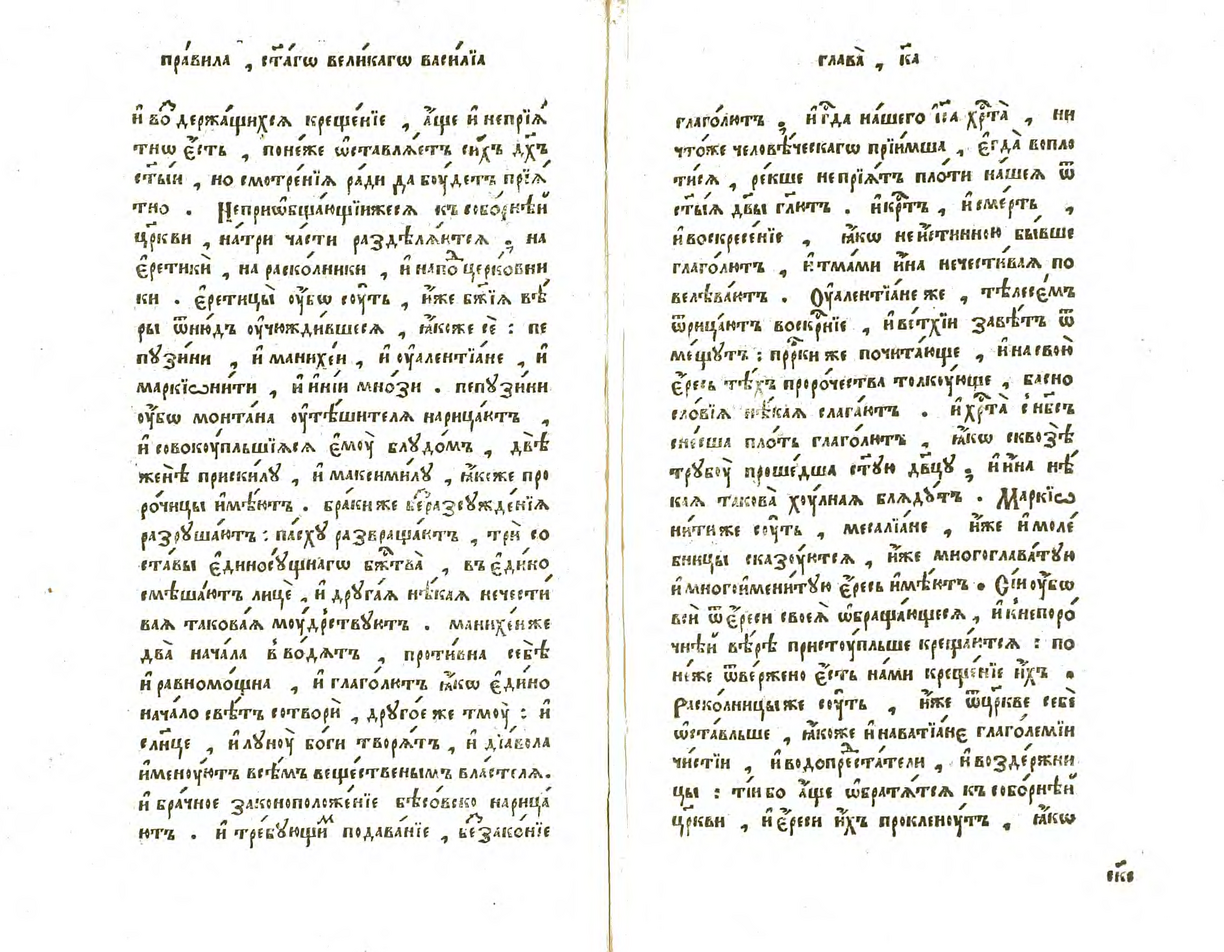 пра́вила , ст҃а́гѡ вели́кагѡ васи́лїа
и҆ во держа́щихсѧ креще́нїе , а҆́ще и҆ непрїѧ́
тнѡ є҆́сть , поне́же ѡ҆ставлѧ́етъ си́хъ дх҃ъ
ст҃ы́и , но смотре́нїѧ ра́ди да бꙋ́детъ прїѧ́
тно . Непричѡбща́ющїижесѧ къ собо́рнѣи
цр҃кви , на́три ча́сти раздѣлѧ́ютсѧ , на
є҆ретикѝ , на раско́лники , и҆ напо церко́вни
ки . є҆ретицы̀ оу҆́бѡ сꙋ́ть , и҆́же бж҃їѧ вѣ́
ры ѿню́дъ оу҆чюжди́вшесѧ , ꙗ҆́коже сѐ : пе
пꙋзи́ни , и҆ манихе́и , и҆ оу҆алентїа́не , и҆
маркїѡни́ти , и҆ и҆ні́и мно́зи . пепꙋзи́ни
оу҆́бѡ монта́на оу҆тѣ́шителѧ нарица́ютъ ,
и҆ совокꙋ́пльшїѧсѧ є҆мꙋ̀ блꙋдо́мъ , двѣ̀
женѣ̀ приски́лꙋ , и҆ максими́лꙋ , ꙗ҆́коже про
ро́чицы и҆мѣ́ютъ . бра́киже безразсꙋжде́нїѧ
разрꙋша́ютъ : па́схꙋ развраща́ютъ , трѝ со
ста́вы є҆диносꙋ́щнагѡ бж҃тва̀ , въ є҆ди́но
смѣша́ютъ лицѐ , и҆ дрꙋга́ѧ нѣ́каѧ нечести́
ваѧ такова́ѧ мꙋ́дрствꙋютъ . манихе́иже
два̀ нача́ла вво́дѧтъ , проти́вна себѣ̀
и҆ равномо́щна , и҆ глаго́лютъ ꙗ҆́кѡ є҆ди́но
нача́ло свѣ́тъ сотворѝ , дрꙋго́е же тмꙋ̀ : и҆
сл҃нце , и҆ лꙋнꙋ̀ бо́ги творѧ́тъ , и҆ дїа́вола
и҆менꙋ́ютъ всѣ́мъ веще́ственымъ власте́лѧ .
и҆ бра́чное законоположе́нїе бѣсо́вско нарица́
ютъ . и҆ тре́бꙋющим подава́нїе , беззако́нїе
глава̀ , к҃а
глаго́лютъ , и҆ гд҃а на́шего і҆с҃а хр҃та̀ , ни
что́же человѣ́ческагѡ прїи́мша , є҆гда̀ вопло
ти́сѧ , ре́кше непрїѧ́тъ пло́ти на́шеѧ ѿ
ст҃ы́ѧ дв҃ы гл҃ютъ . и҆ кр҃тъ , и҆ сме́рть ,
и҆ воскресе́нїе , ꙗ҆́кѡ не и҆́стинною бы́вше
глаго́лютъ , и҆ тма́ми и҆́на нечести́ваѧ по
велѣва́ютъ . Оу҆алентїа́не же , тѣлесе́мъ
ѿрица́ютъ воскр҃нїе , и҆ ве́тхїи завѣ́тъ ѿ
ме́щꙋтъ : прр҃ки же почита́юще , и҆ на свою̀
є҆́ресь тѣ́хъ проро́чества толкꙋ́юще , басно
сло́вїѧ нѣ́каѧ слага́ютъ . и҆ хр҃та̀ с нб҃съ
сне́сша пло́ть глаго́лютъ , ꙗ҆́кѡ сквозѣ̀
трꙋбꙋ̀ проше́дша ст҃ꙋ́ю дв҃цꙋ , и҆ и҆́на нѣ́
каѧ такова̀ хꙋ́лнаѧ блѧдꙋ́тъ . Маркїѡ
ни́тиже сꙋ́ть , месалїа́не , и҆́же и҆ моле́
бницы сказꙋ́ютсѧ , и҆́же многоглава́тꙋю
и҆ многоимени́тꙋю є҆́ресь и҆мѣ́ютъ . Сі́и оу҆́бѡ
всѝ ѿ є҆́реси своеѧ̀ ѡ҆браща́ющесѧ , и҆ к непоро́
чнѣи вѣ́рѣ пристꙋ́пльше креща́ютсѧ : по
не́же ѿве́ржено є҆́сть на́ми креще́нїе и҆́хъ .
Раско́лницыже сꙋ́ть , и҆́же ѿцр҃кве себѐ
ѡ҆ста́вльше , ꙗ҆́коже и҆ наватїа́не глаго́лемїи
чи́стїи , и҆ водопреста́тели , и҆ возде́ржни
цы : ті́и бо а҆́ще ѡ҆братѧ́тсѧ къ собо́рнѣй
цр҃кви , и҆ є҆́реси и҆́хъ проклену́тъ , ꙗ҆́кѡ